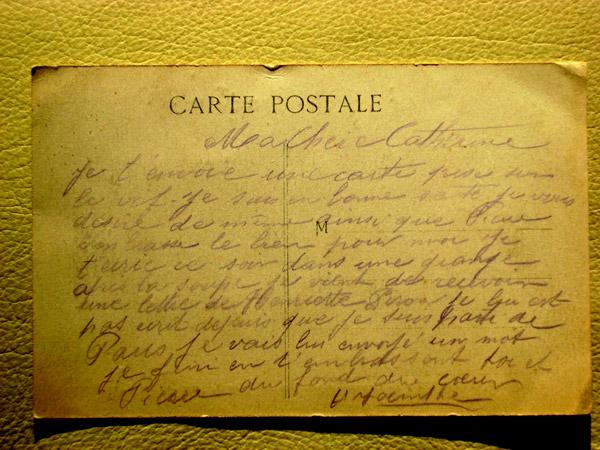 CARTE POSTALE
Ma Cherie Catherine
je t'envoie une carte prise sur
le vif. Je suis en bonne santé je vous
désire de même ainsi que Pierre
embrasse le bien pour moi je
M
t'écris ce soir dans une grange
après la soupe je vient de recevoir
une lettre de Henriette je lui est
pas écrit depuis que je suis parti de
Paris je vais lui envoyé un mot
je fini en t'embrassant toi et
Pierre du fond du cœur
Hyacinthe